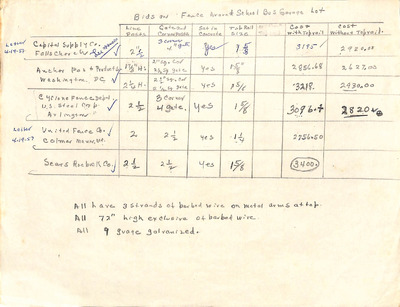 Bids on Fence around School Bus Garage Lot
Line Posts | Gate and Corner Posts | Set in Concrete | Top Rail Size | Cost with Toprail | Cost without Toprail
Letter 4-19-57 Capital Supply Co. Falls Church Va | 2½ | 3 corner 4 gate | yes | 1 5/8 | 3195 | 2920.00
Anchor Post + Products Washington, DC | H. | yes | 1 5/8 | 2627.00
2¼ H. | yes | 1 5/8 | 3218. | 2930.00
Cyclone Fence Dept U.S. Steel Corp Arlington | 2½ | 3 Corner 4 gate. | yes | 1 5/8 | 2820
Letter 4-19-57 United Fence Co. Colmar Manor, Md. | 2 | 2½ | yes | 1¼ | 2756.50
Sears Roebuck Co. | 2½ | 2½ | yes | 1 5/8 | 3400.
All have 3 strands of barbed wire on metal arms at top.
All 72" high exclusive of barbed wire.
All 9 guage galvanized.